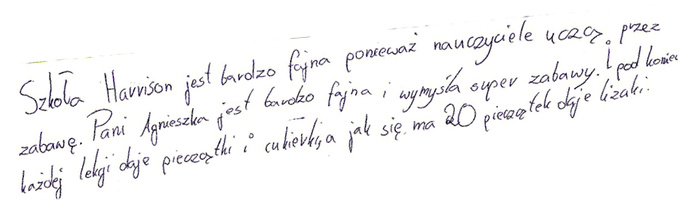 Szkoła Harrison jest bardzo fajna ponieważ nauczyciele uczą przez
zabawę. Pani Agnieszka jest bardzo fajna i wymyśla super zabawy. I pod koniec
każdej lekcji daje pieczątki i cukierki, a jak się ma 20 pieczątek daje lizaki.